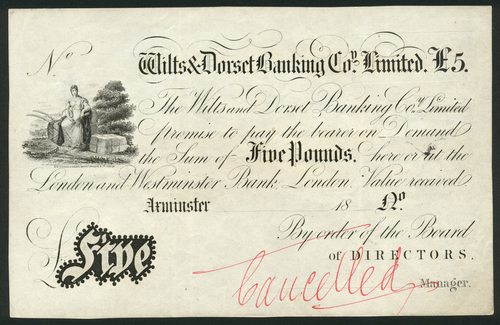 No Wilts & Dorset Banking Coy. Limited. £5.
The Wilts and Dorset Banking Coy. Limited
promise to pay the bearer on Demand
the Sum of Five Pounds, here or at the
London and Westminster Bank, London. Value received
Axminster 18 No.
By order of the Board
of DIRECTORS.
£ Five
Cancelled
Manager.